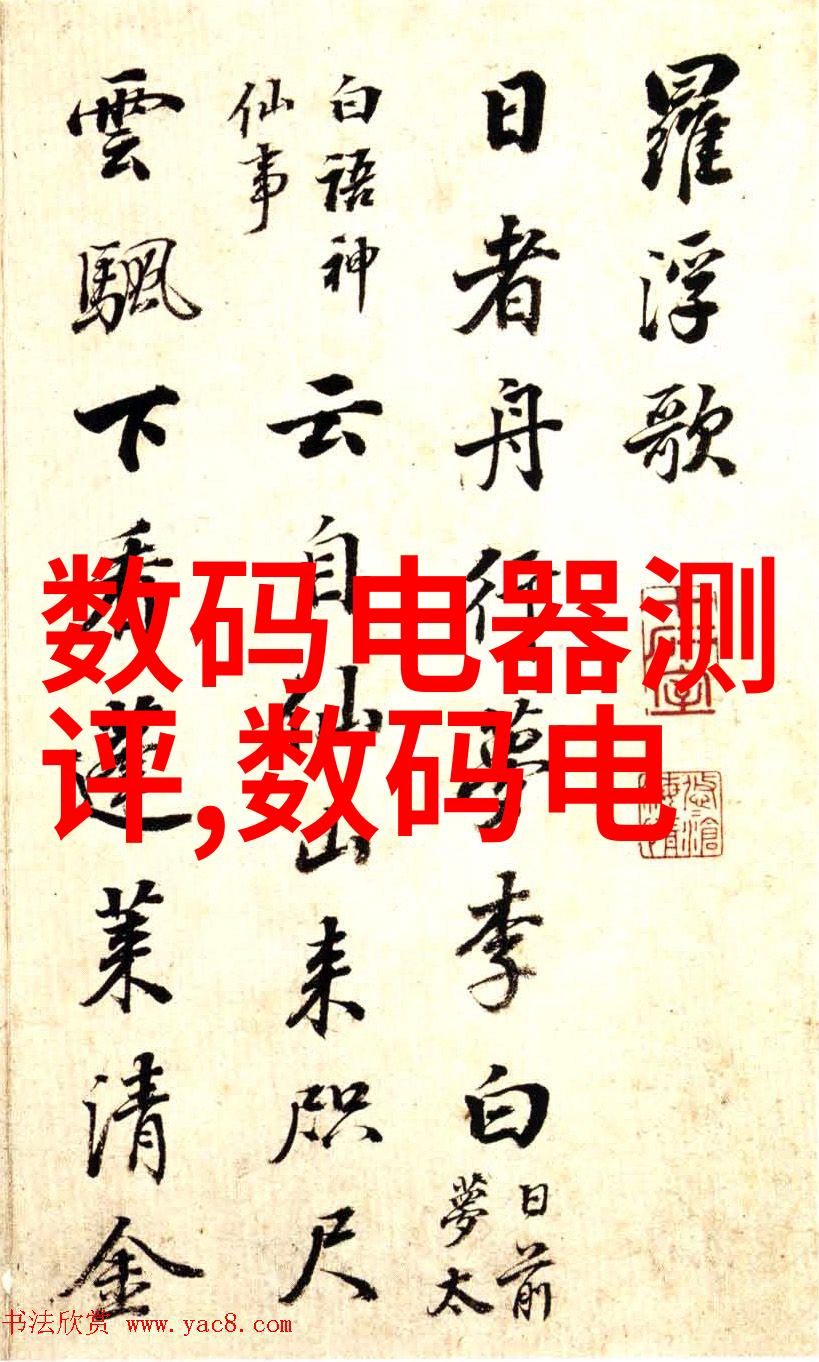 羅浮歌
日者舟行夢李白
日前
夢太
白語神
仙事
云自仙山来咫尺
雲颿下秀蓬莱清金
数码电器测
评,数码电
书法欣赏 www.yac8.com